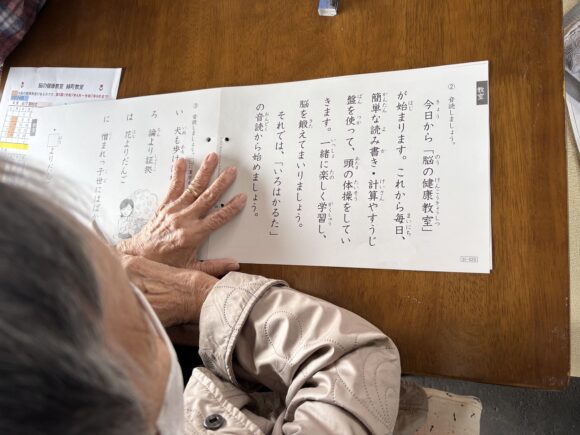 教室
② 音読しましょう。
今日から「脳の健康教室」
が始まります。これから毎日、
簡単な読み書き・計算やすうじ
盤を使って、頭の体操をしてい
きます。一緒に楽しく学習し、
脳を鍛えてまいりましょう。
それでは、「いろはかるた」
の音読から始めましょう。
③ 音読しましょう
い 犬も歩け
ろ 論より証拠
は 花よりだんご
に 憎まれっ子世にはば
脳の健康教室